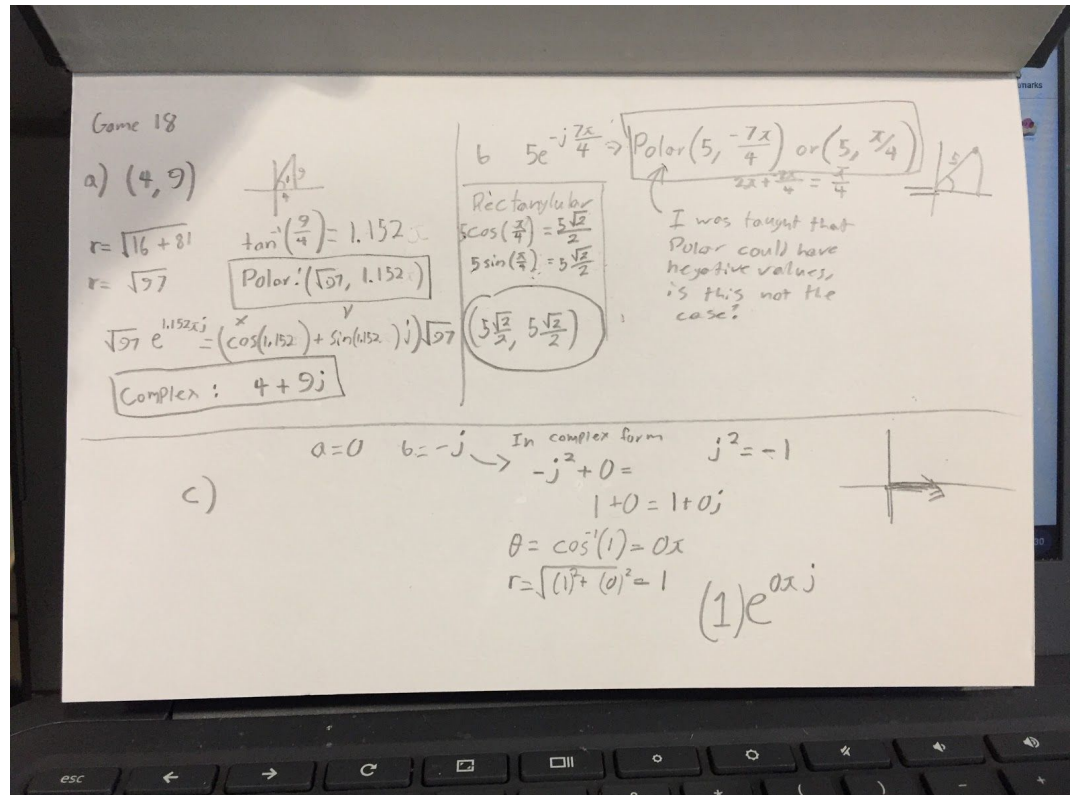 Game 18
a) (4, 9)
9
4
r = √16 + 81
r = √97
tan⁻¹(9/4) = 1.152
Polar: (√97, 1.152)
x y
√97 e^1.152πj = (cos(1.152) + sin(1.152) j) √97
Complex: 4 + 9j
b 5e^-j7π/4 ⇒ Polar (5, -7π/4) or (5, π/4)
2π + -7π/4 = π/4
5
Rectanglular
5cos(π/4) = 5√2/2
5sin(π/4) = 5√2/2
(5√2/2, 5√2/2)
I was taught that
Polar could have
negative values,
is this not the
case?
c)
a=0 b=-j → In complex form
-j² + 0 =
j² = -1
1 + 0 = 1 + 0j
θ = cos⁻¹(1) = 0π
r = √(1)² + (0)² = 1
(1)e^0πj
marks
esc